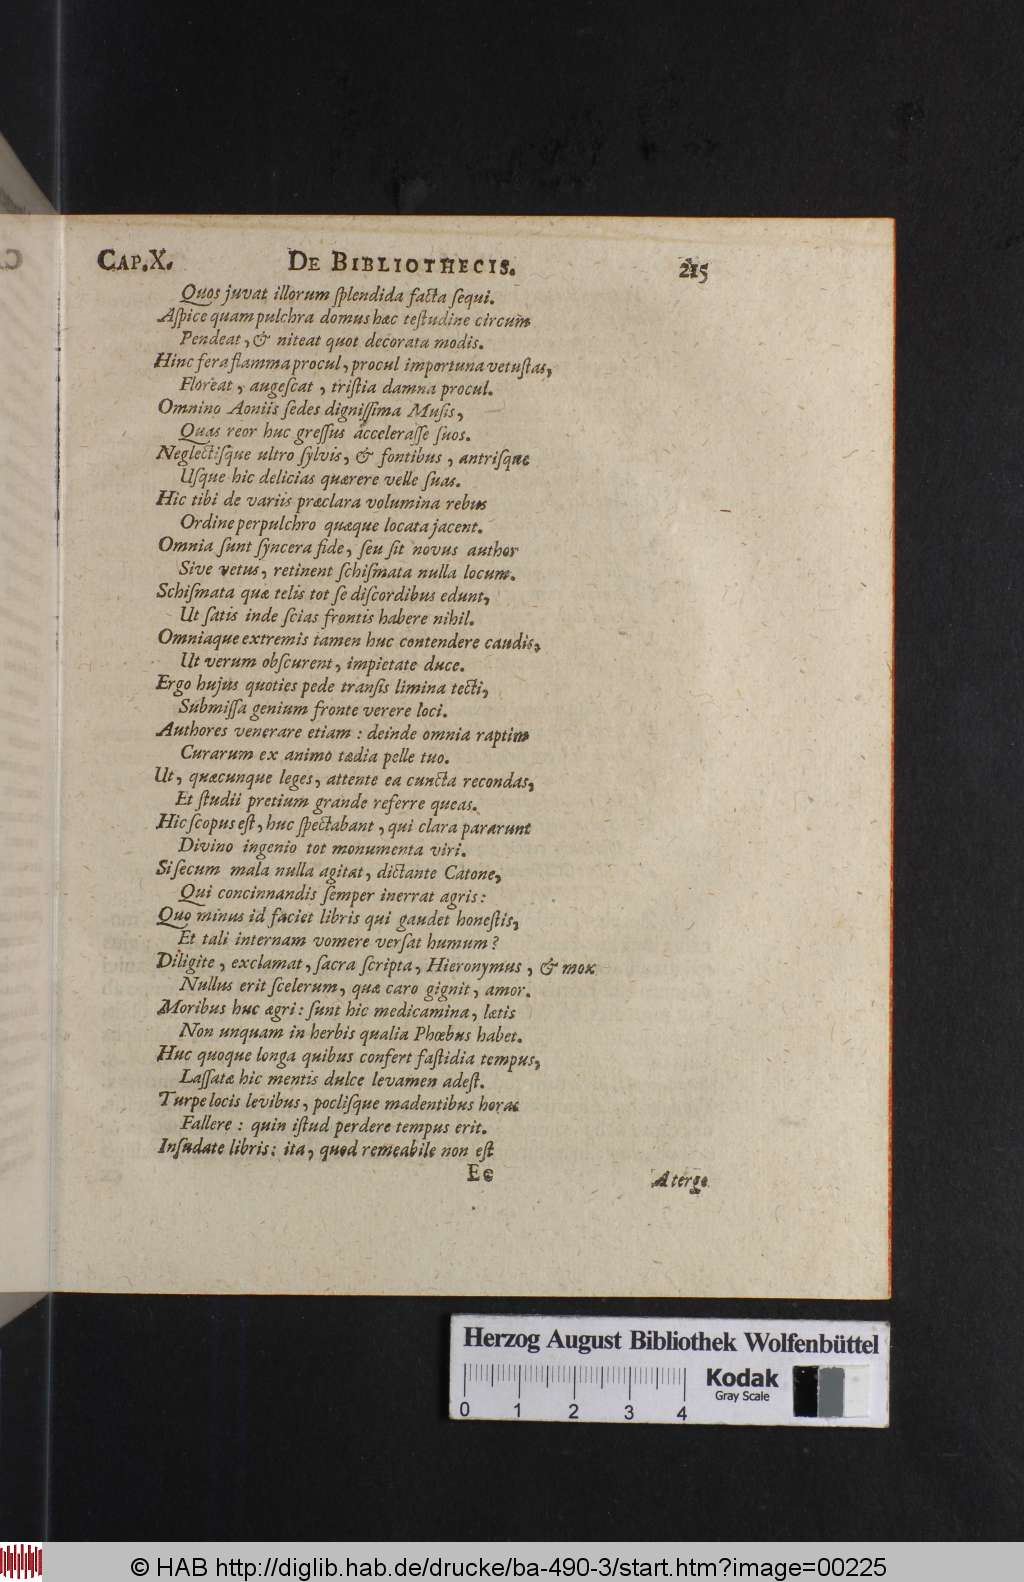 CAP. X. DE BIBLIOTHECIS. 215
Quos juvat illorum ſplendida facta ſequi.
Aſpice quam pulchra domus hæc teſtudine circum
Pendeat, & niteat quot decorata modis.
Hinc fera flamma procul, procul importuna vetuſtas,
Floreat, augeſcat, triſtia damna procul.
Omnino Aoniis ſedes digniſſima Muſis,
Quas reor huc greſſus acceleraſſe ſuos.
Neglectiſque ultro ſylvis, & fontibus, antriſque
Uſque hic delicias quærere velle ſuas.
Hic tibi de variis præclara volumina rebus
Ordine perpulchro quæque locata jacent.
Omnia ſunt ſyncera fide, ſeu ſit novus author
Sive vetus, retinent ſchiſmata nulla locum.
Schiſmata quæ telis tot ſe diſcordibus edunt,
Ut ſatis inde ſcias frontis habere nihil.
Omniaque extremis tamen huc contendere caudis,
Ut verum obſcurent, impietate duce.
Ergo hujus quoties pede tranſis limina tecti,
Submiſſa genium fronte verere loci.
Authores venerare etiam : deinde omnia raptim
Curarum ex animo tædia pelle tuo.
Ut, quæcunque leges, attente ea cuncta recondas,
Et ſtudii pretium grande referre queas.
Hic ſcopus eſt, huc ſpectabant, qui clara pararunt
Divino ingenio tot monumenta viri.
Si ſecum mala nulla agitat, dictante Catone,
Qui concinnandis ſemper inerrat agris :
Quo minus id faciet libris qui gaudet honeſtis,
Et tali internam vomere verſat humum ?
Diligite, exclamat, ſacra ſcripta, Hieronymus, & mox
Nullus erit ſcelerum, quæ caro gignit, amor.
Moribus huc ægri : ſunt hic medicamina, lætis
Non unquam in herbis qualia Phœbus habet.
Huc quoque longa quibus confert faſtidia tempus,
Laſſatæ hic mentis dulce levamen adeſt.
Turpe locis levibus, pocliſque madentibus horas
Fallere : quin iſtud perdere tempus erit.
Inſudate libris : ita, quod remeabile non eſt
Ee A tergo
Herzog August Bibliothek Wolfenbüttel
Kodak
Gray Scale
0 1 2 3 4
© HAB http://diglib.hab.de/drucke/ba-490-3/start.htm?image=00225